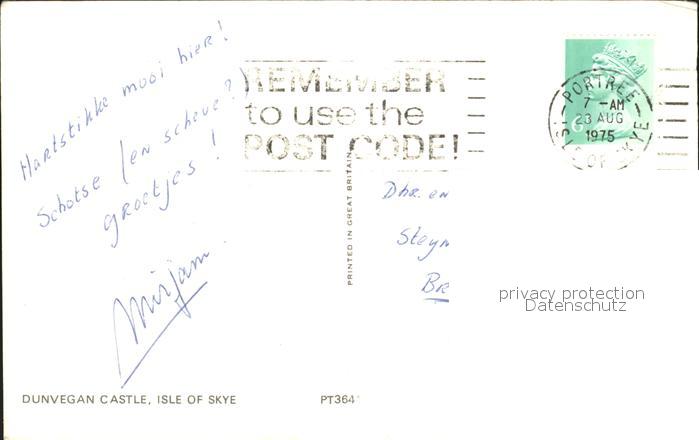 Hartstikke mooi hier!
Schotse (en scheve?)
groetjes!
Mirjam
REMEMBER
to use the
POST CODE!
PORTREE
7 -AM
23 AUG
1975
ISLE OF SKYE
PRINTED IN GREAT BRITAIN
Dhr. en
Steyn
Br
privacy protection
Datenschutz
DUNVEGAN CASTLE, ISLE OF SKYE
PT364